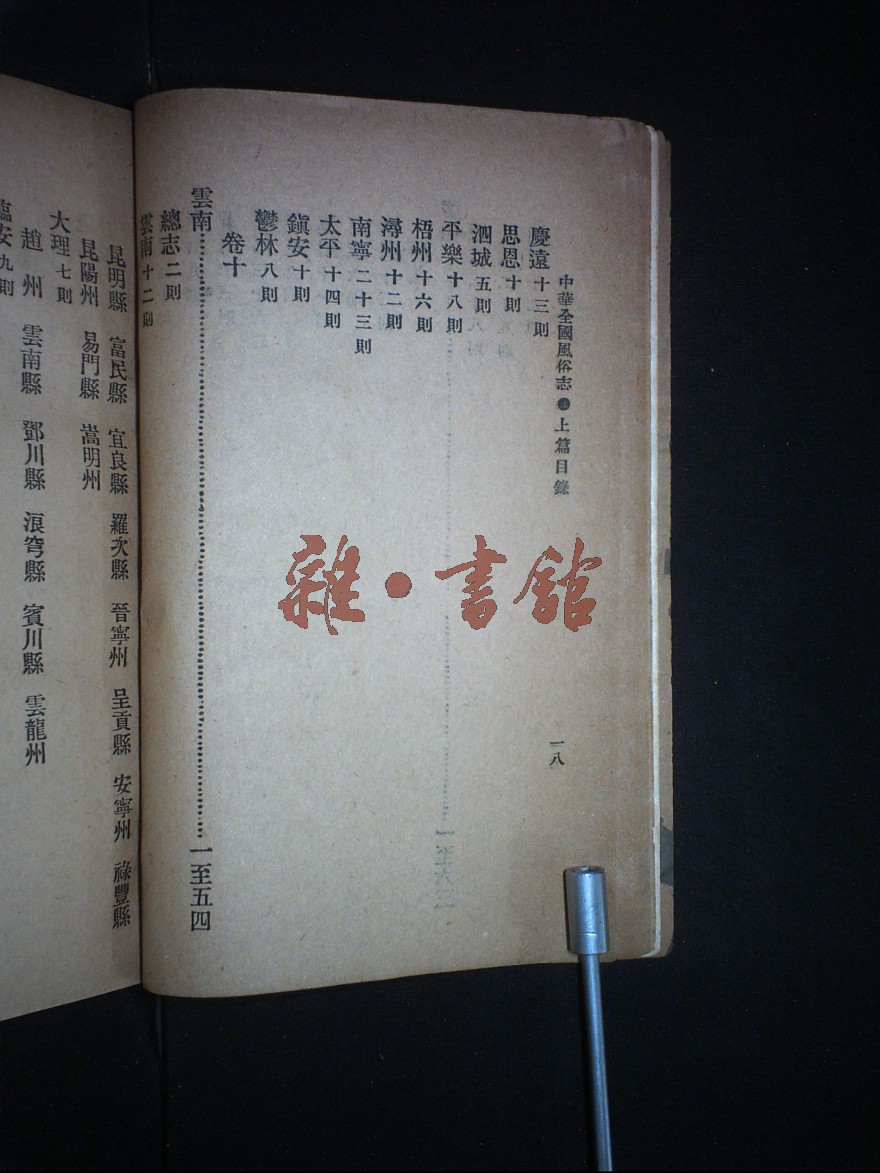 中華全國風俗志 上篇目錄
一八
慶遠十三則
思恩十則
泗城五則
平樂十八則
梧州十六則
潯州十二則
南寧二十三則
太平十四則
鎭安十則
鬱林八則
卷十
雲南 一至五四
總志二則
雲南十二則
昆明縣 富民縣 宜良縣 羅次縣 晉寧州 呈貢縣 安寧州 祿豐縣
昆陽州 易門縣 嵩明州
大理七則
趙州 雲南縣 鄧川縣 浪穹縣 賓川縣 雲龍州
臨安九則
雜·書館